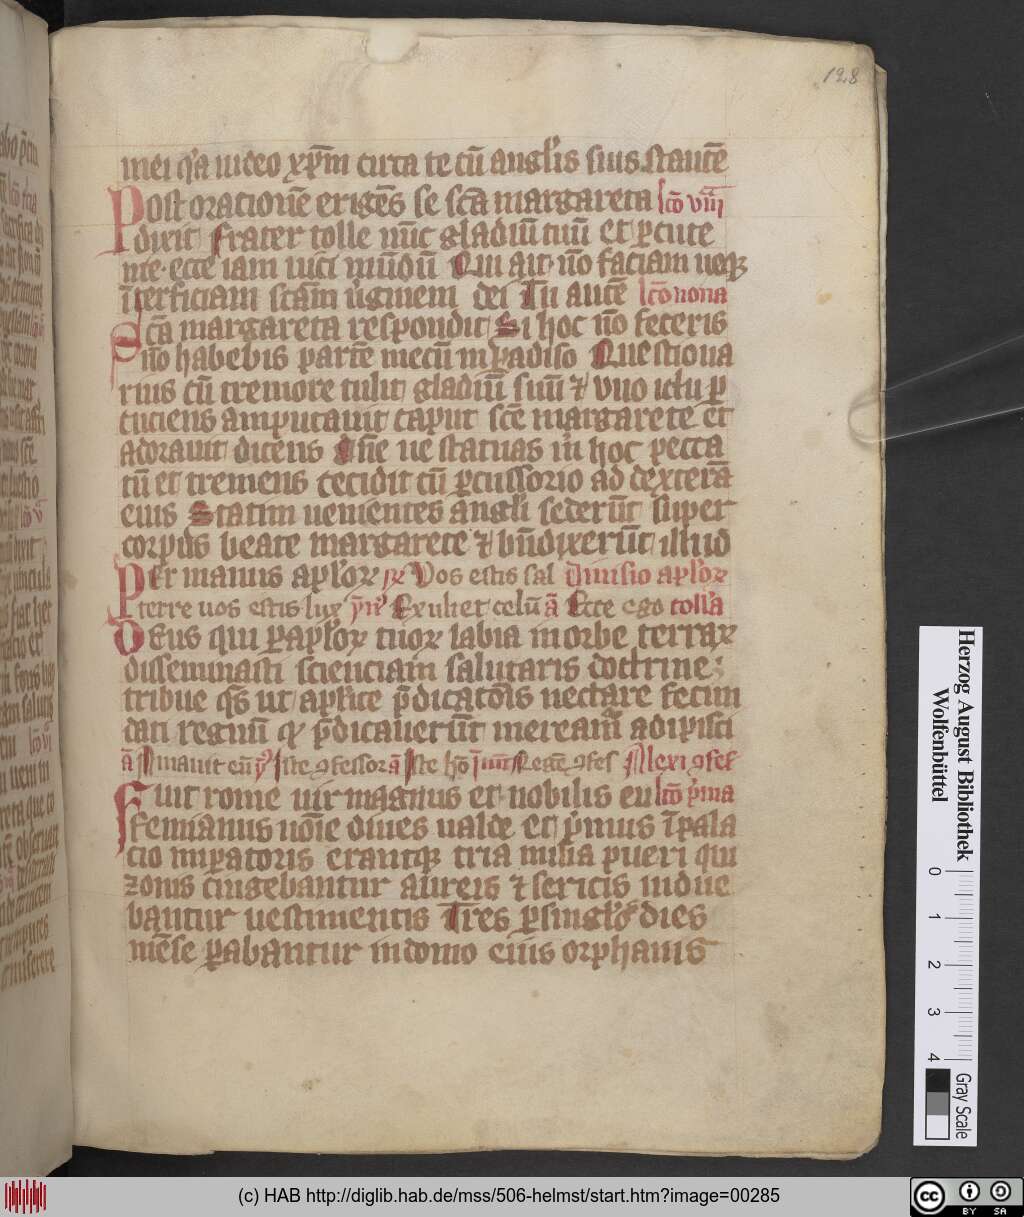 128
mei q'a uideo xp̄m circa te cū angl'is suis stantē
Post orationē erigēs se scā margareta lc̄o viii
dixit frater tolle nūc gladiū tuū et ꝑcute
me ecce iam uici mūdū Qui ait nō faciam neqꝫ
īterficiam scām ūginem dei Tū autē lc̄o nona
Scā margareta respondit Si hoc nō feceris
nō habebis partē mecū in ꝑadiso Questiona
rius cū tremore tulit gladiū suū ⁊ vno ictu ꝑ
cuciens amputauit caput scē margarete et
adorauit dicens dn̄e ne statuas in hoc pecca
tū et tremens cecidit cū ꝑcussorio ad dexterā
eius Statim uenientes angl'i sederūt super
corpus beate margarete ⁊ bn̄dixerūt illud
Per manus apl'oꝝ ꝶ Vos estis sal Diuisio apl'oꝝ
terre uos estis lux Exultet celū ā Ecce ego coll'a
Deus qui ꝑ apl'oꝝ tuoꝝ labia in orbe terraꝝ
disseminasti scienciam salutaris doctrine
tribue q̄s ut apl'ice p̄dicatōis nectare fecun
dati regnū qd p̄dicauerūt mereamᷣ adipisci
ā Amauit eū Iste ꝯfessor ā Iste hō Regē ꝯfes Alexi ꝯfes
Fuit rome uir magnus et nobilis eu lc̄o p̄ma
femianus nōie diues ualde et p̄mus ī pala
cio inꝑatoris erantqꝫ tria milia pueri qui
zonis cingebantur aureis ⁊ sericis indue
bantur uestimentis Tres ꝑ singl'os dies
mēse ꝑabantur in domo eius orphanis
Herzog August Bibliothek
Wolfenbüttel
0 1 2 3 4
Gray Scale
(c) HAB http://diglib.hab.de/mss/506-helmst/start.htm?image=00285
cc BY SA